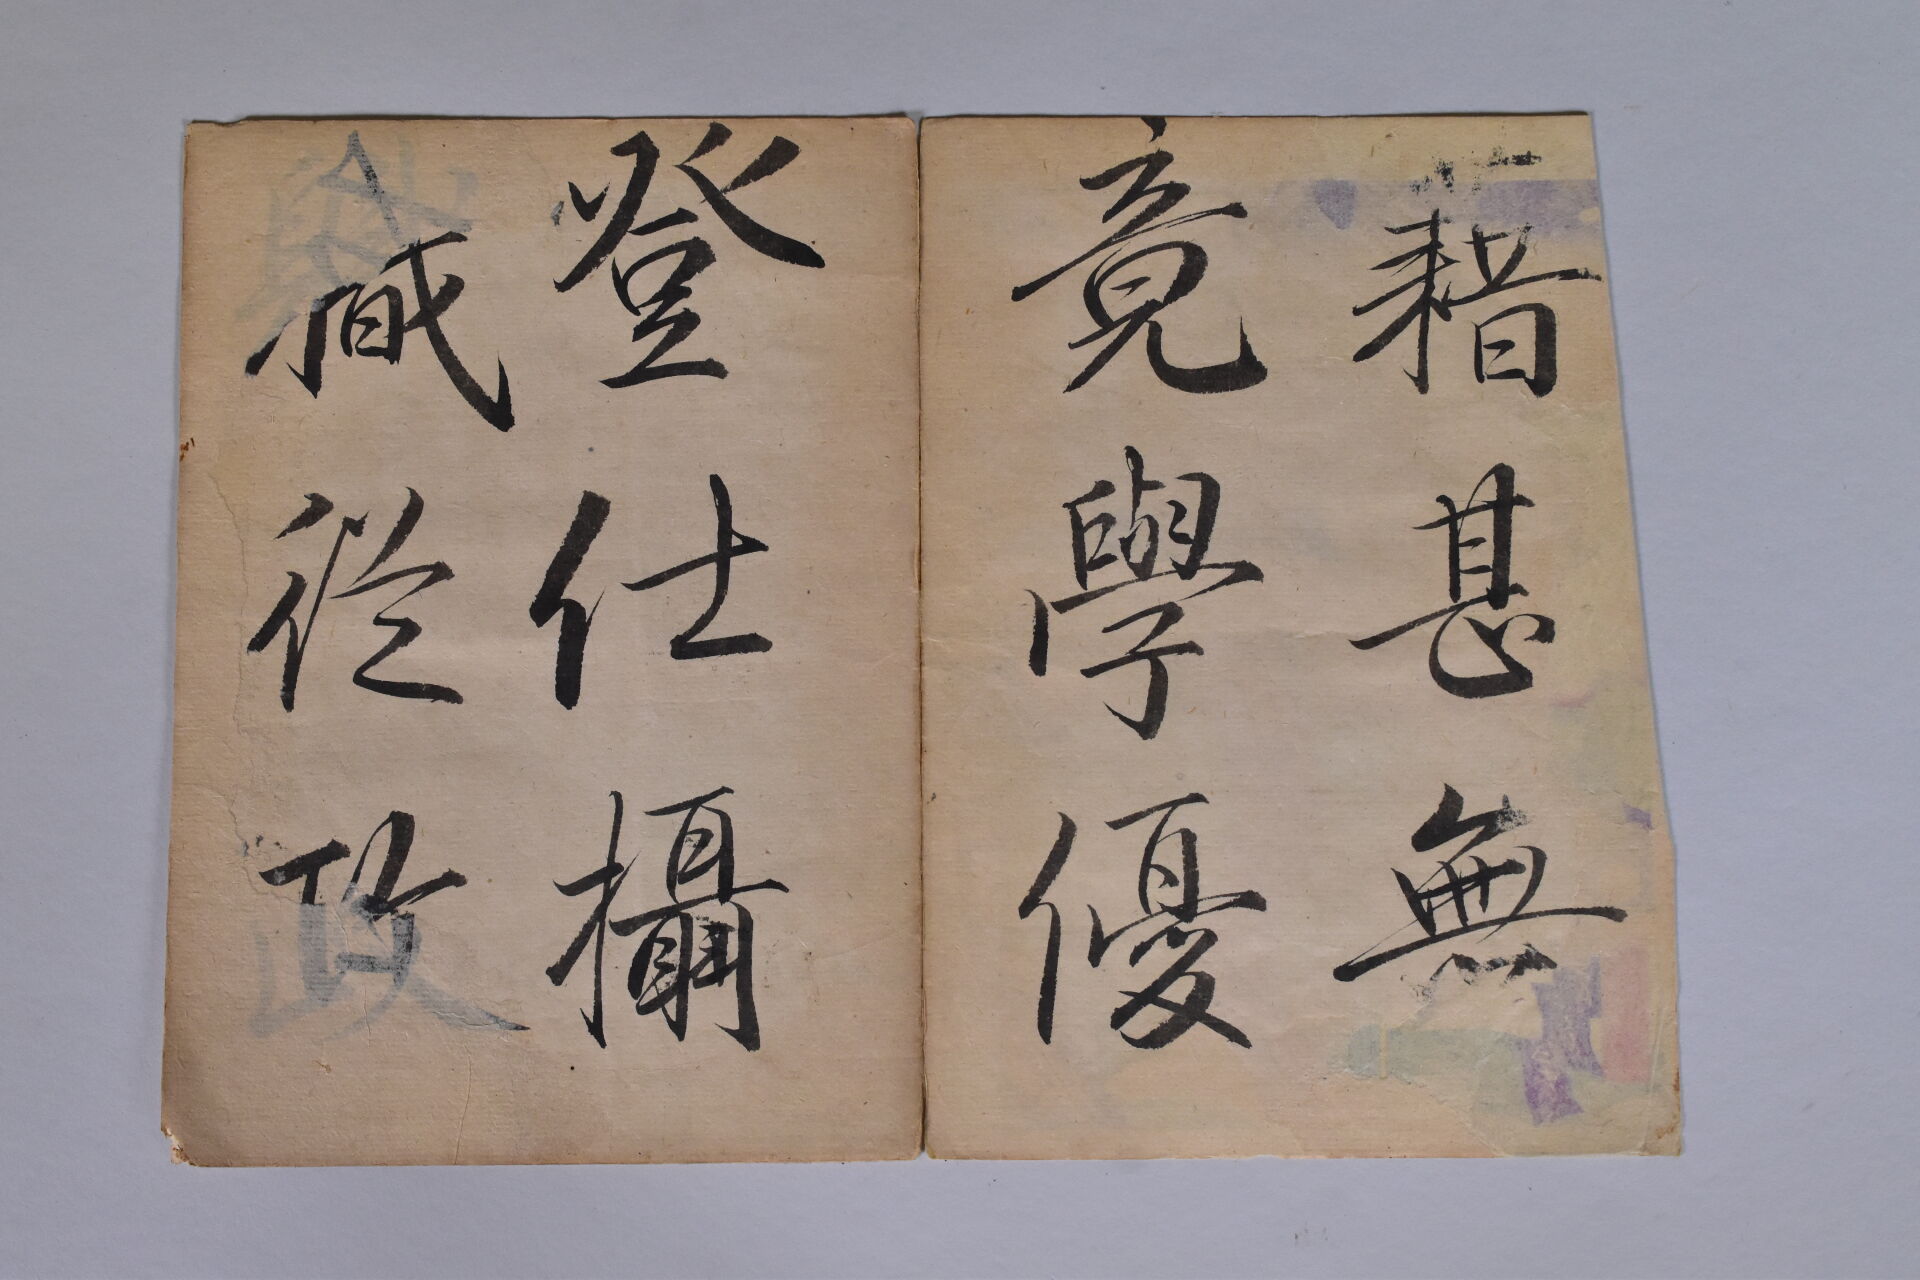 藉甚無
竟學優
登仕攝
職從政